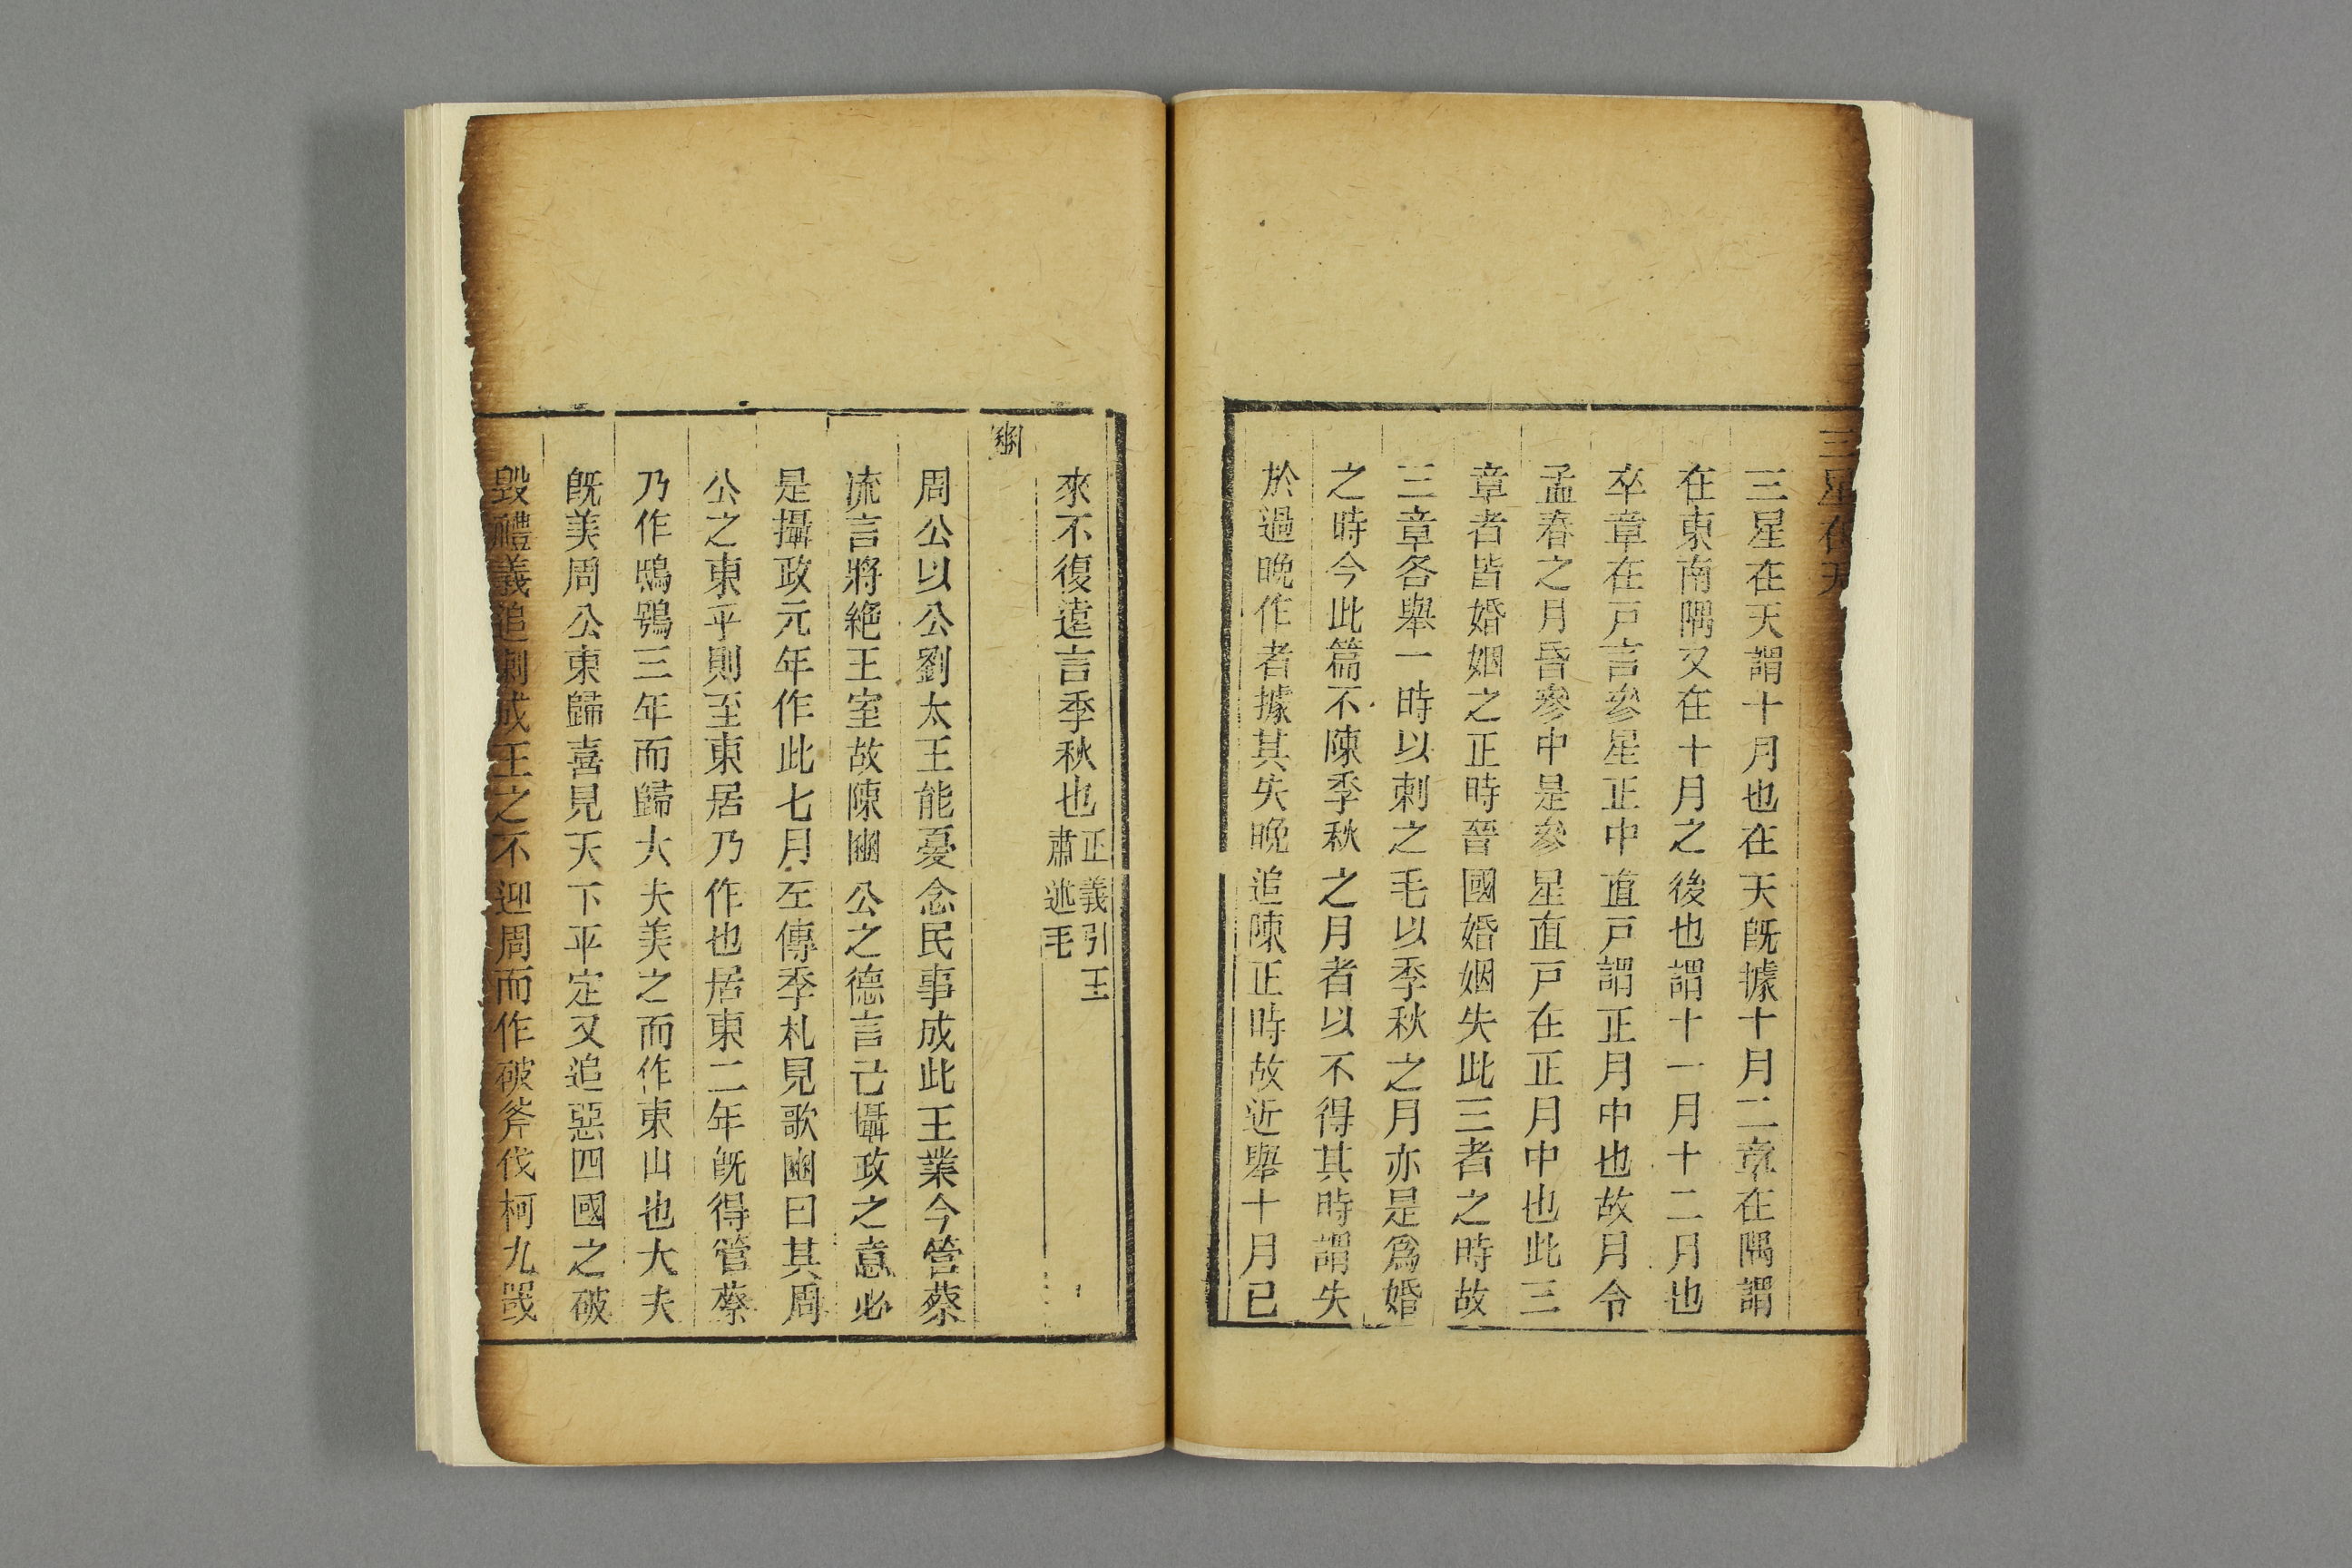 三星在天
三星在天謂十月也在天旣據十月二章在隅謂
在東南隅又在十月之後也謂十一月十二月也
卒章在戸言參星正中直戸謂正月中也故月令
孟春之月昏參中是參星直戸在正月中也此三
章者皆婚姻之正時晉國婚姻失此三者之時故
三章各舉一時以刺之毛以季秋之月亦是爲婚
之時今此篇不陳季秋之月者以不得其時謂失
於過晚作者據其失晚追陳正時故近舉十月已
來不復遠言季秋也正義引王
肅述毛
豳
周公以公劉太王能憂念民事成此王業今管蔡
流言將絶王室故陳豳公之德言己攝政之意必
是攝政元年作此七月左傳季札見歌豳曰其周
公之東乎則至東居乃作也居東二年旣得管蔡
乃作鴟鴞三年而歸大夫美之而作東山也大夫
旣美周公東歸喜見天下平定又追惡四國之破
毁禮義追刺成王之不迎周而作破斧伐柯九罭